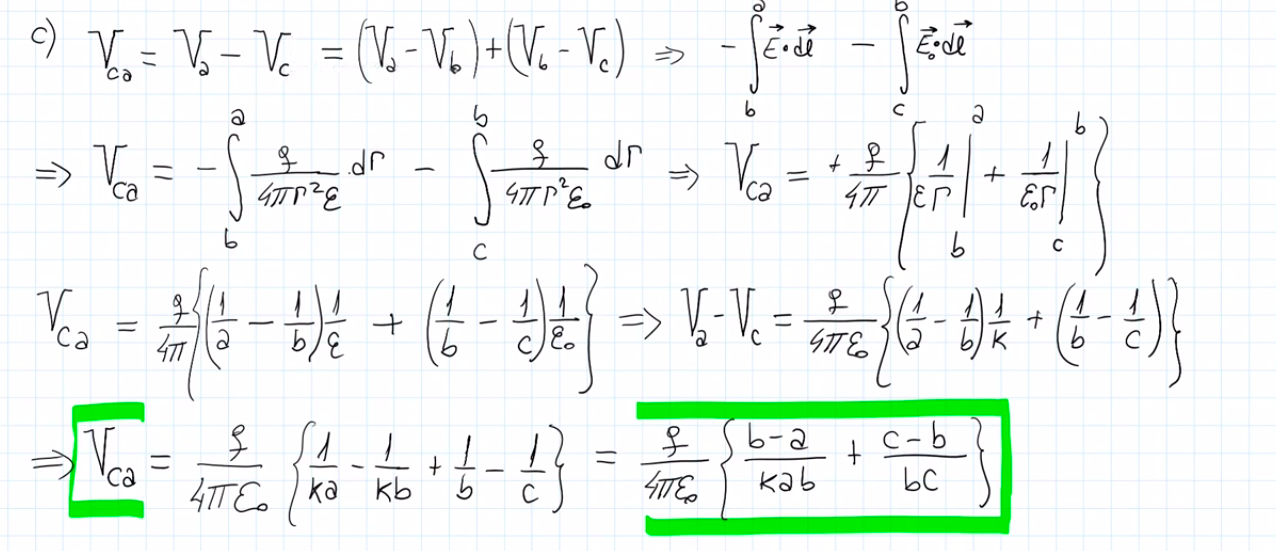 c) V_ca = V_a - V_c = (V_a - V_b) + (V_b - V_c) ⇒ -∫_b^a E⃗·dℓ⃗ - ∫_c^b E⃗₀·dℓ⃗
⇒ V_ca = -∫_b^a q/(4πr²ε) dr - ∫_c^b q/(4πr²ε₀) dr ⇒ V_ca = + q/4π { 1/(εr) |_b^a + 1/(ε₀r) |_c^b }
V_ca = q/4π { (1/a - 1/b) 1/ε + (1/b - 1/c) 1/ε₀ } ⇒ V_a - V_c = q/(4πε₀) { (1/a - 1/b) 1/k + (1/b - 1/c) }
⇒ V_ca = q/(4πε₀) { 1/(ka) - 1/(kb) + 1/b - 1/c } = q/(4πε₀) { (b-a)/(kab) + (c-b)/(bc) }